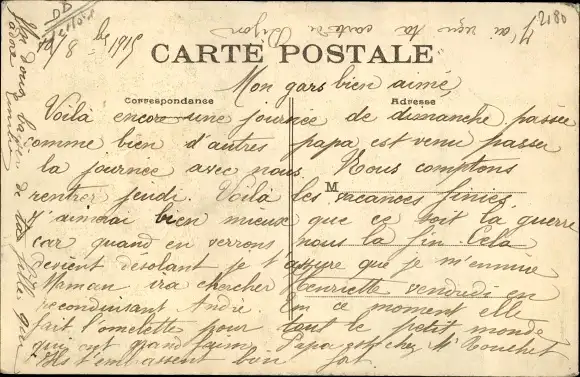 2180
J'ai reçu ta carte de Dijon
8 1915
CARTE POSTALE
Mon gars bien aimé,
Correspondance
Adresse
Voilà encore une journée de dimanche passée
comme bien d'autres papa est venu passer
la journée avec nous. Nous comptons
rentrer jeudi. Voilà les vacances finies,
M
J'aimerai bien mieux que ce soit la guerre
car quand en verrons nous la fin. Cela
devient désolant je t'assure que je m'ennuie
Maman ira chercher Henriette vendredi en
reconduisant André En ce moment elle
fait l'omelette pour tout le petit monde
qui ont grand faim. Papa est chez Mr Bouchet
Ils t'embrassent bon fort